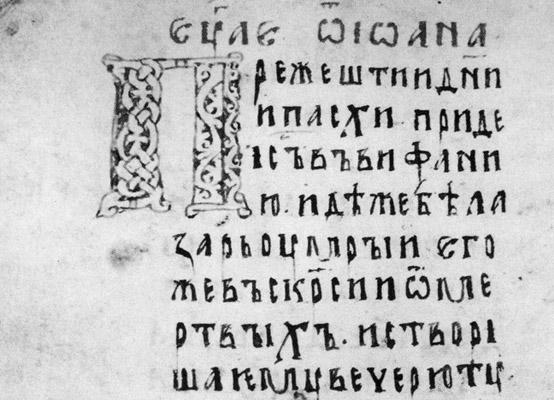 ЕУ҃ЛЕ ѾІѠАНА
ПРЕЖЕШТИИДН҃И
ИПАСХИ·ПРИДЕ
ІСЪВЪВИФАНИ
Ю·ИДѢЖЕБѢЛА
ЗАРЬОУМРЫИ ЕГО
ЖЕВЪСКР҃СИИѾМЕ
РТВЫХЪ·ИСТВОРІ
ШАѤМУВЕЧЕРЮТУ